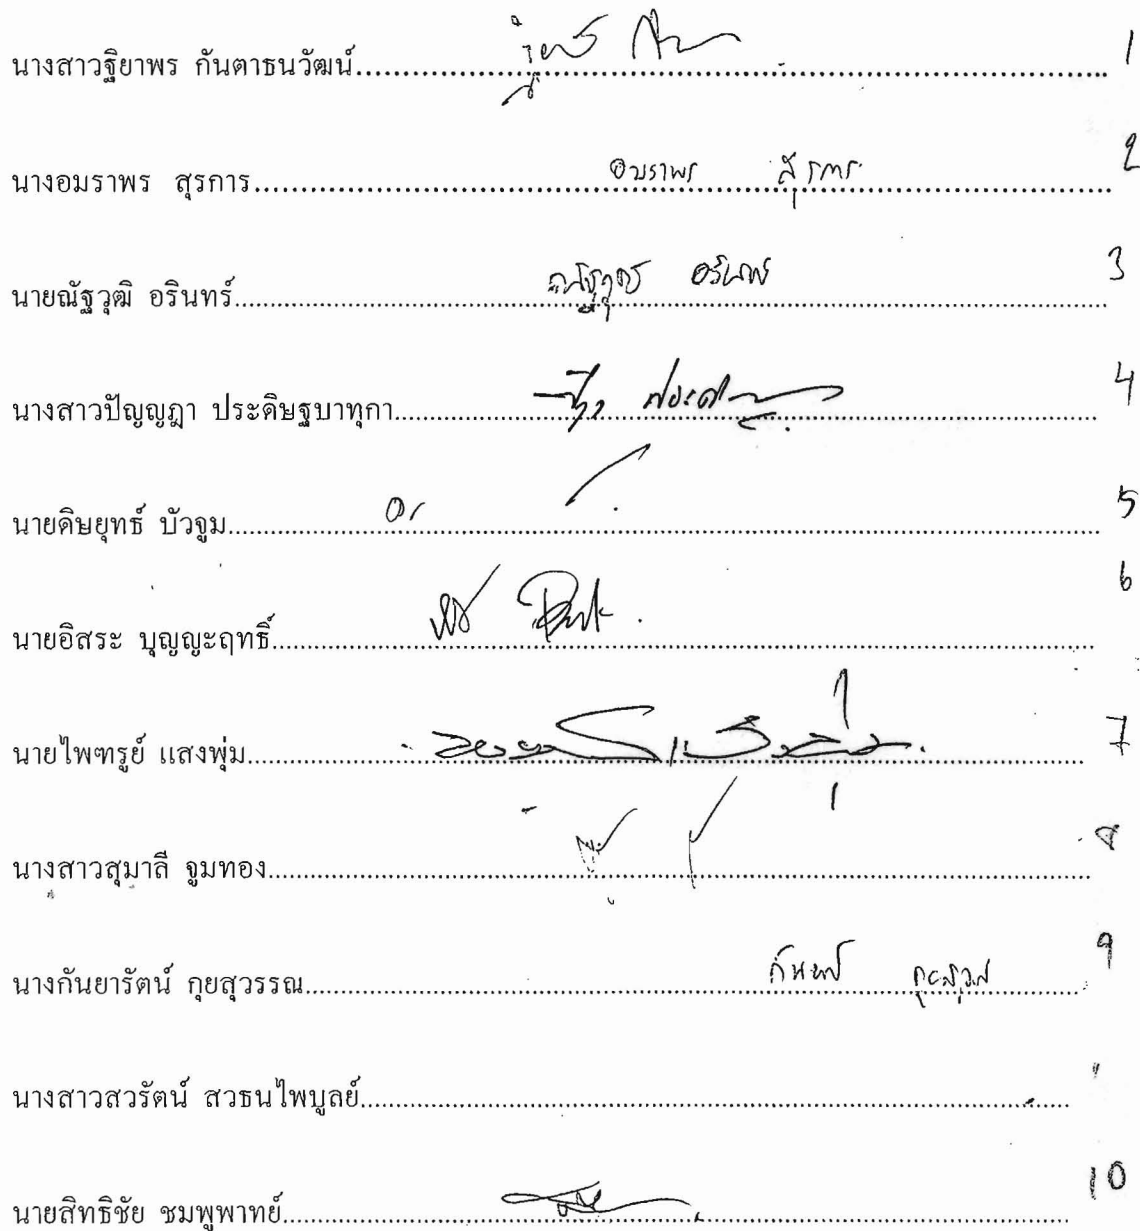 นางสาวฐิยาพร กันตาธนวัฒน์ 1
นางอมราพร สุรการ อมราพร สุรการ 2
นายณัฐวุฒิ อรินทร์ ณัฐวุฒิ อรินทร์ 3
นางสาวปัญญฎา ประดิษฐบาทุกา 4
นายดิษยุทธ์ บัวจูม 5
นายอิสระ บุญญะฤทธิ์ 6
นายไพฑรูย์ แสงพุ่ม 7
นางสาวสุมาลี จูมทอง 8
นางกันยารัตน์ กุยสุวรรณ 9
นางสาวสวรัตน์ สวธนไพบูลย์
นายสิทธิชัย ชมพูพาทย์ 10